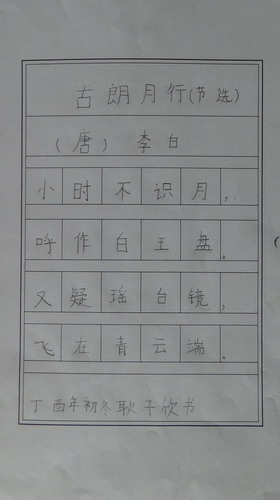 古朗月行(节选)
(唐) 李白
小时不识月,
呼作白王盘。
又疑瑶台镜,
飞在青云端。
丁酉年初冬耿子欣书